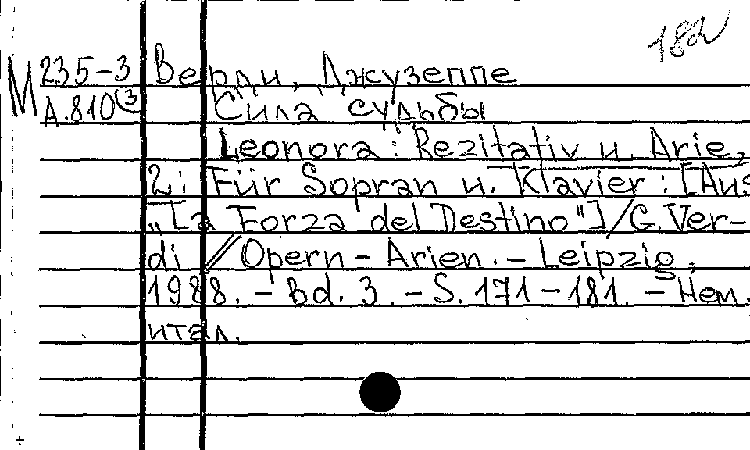 182
М 235-3 Верди, Джузеппе
А.810(3 Сила судьбы
Leonora: Rezitativ u. Arie,
2: Für Sopran u. Klavier: [Aus
„La Forza del Destino"]/G. Ver-
di // Opern - Arien. - Leipzig,
1988. - Bd. 3. - S. 171-181. - Нем.
итал.